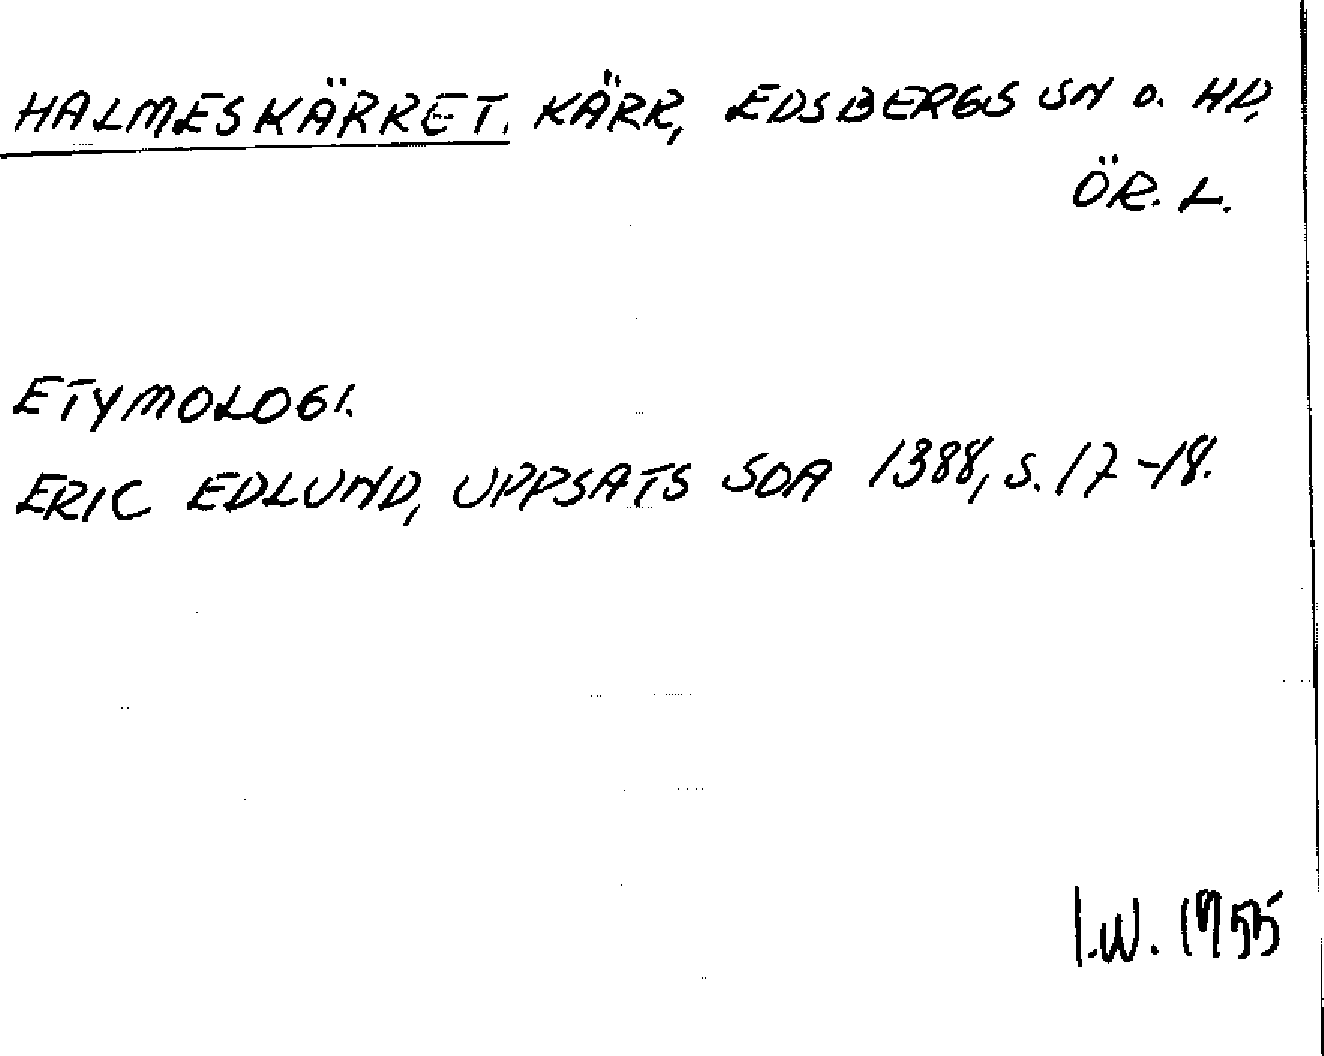 HALMESKÄRRET. KÄRR, EDSBERGS SN O. HD,
ÖR. L.
ETYMOLOGI.
ERIC EDLUND, UPPSATS SOA 1388, S. 17-18.
I.W. 1955